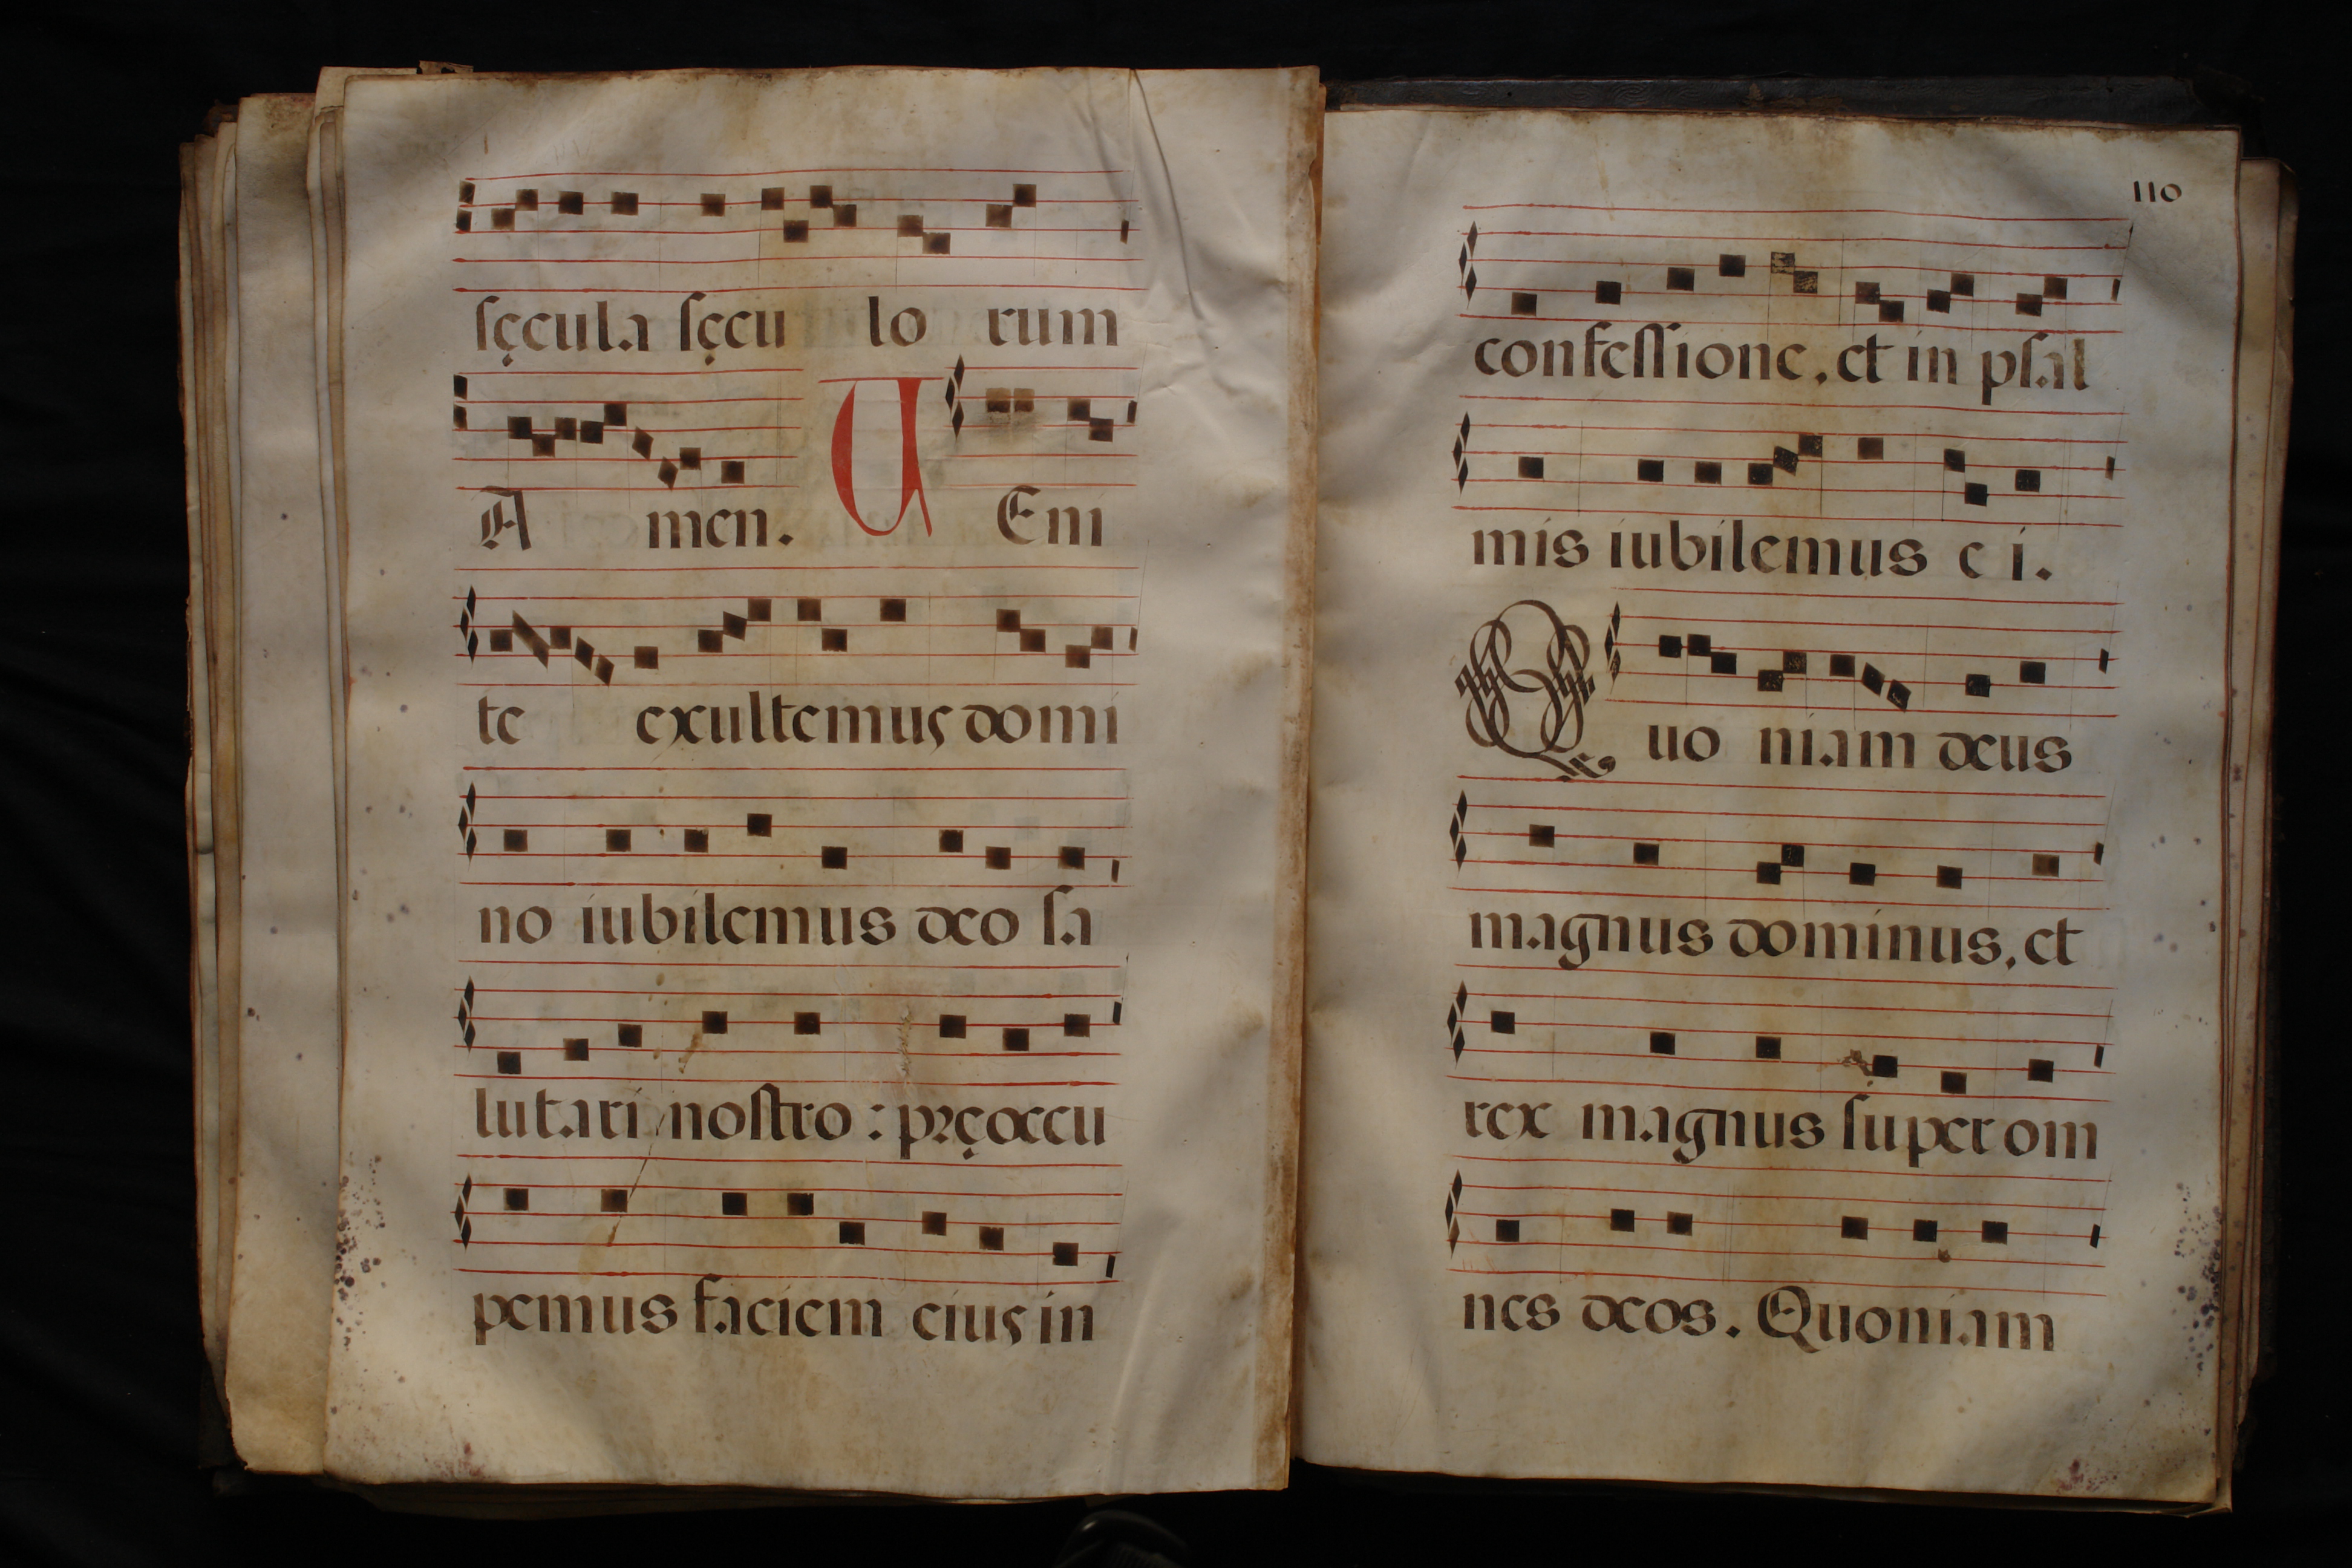 sęcula sęcu lo rum
A men. U Eni
te exultemus domi
no iubilemus deo sa
lutari nostro : pręoccu
pemus faciem eius in
110
confessione, et in psal
mis iubilemus e i.
Quo niam deus
magnus dominus, et
rex magnus super om
nes deos. Quoniam